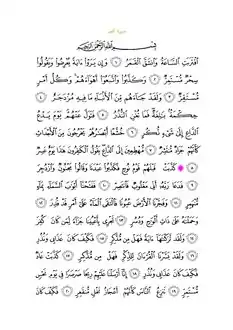 بِسْمِ اللَّهِ الرَّحْمَٰنِ الرَّحِيمِ
اقْتَرَبَتِ السَّاعَةُ وَانْشَقَّ الْقَمَرُ ﴿١﴾ وَإِنْ يَرَوْا آيَةً يُعْرِضُوا وَيَقُولُوا
سِحْرٌ مُسْتَمِرٌّ ﴿٢﴾ وَكَذَّبُوا وَاتَّبَعُوا أَهْوَاءَهُمْ وَكُلُّ أَمْرٍ
مُسْتَقِرٌّ ﴿٣﴾ وَلَقَدْ جَاءَهُمْ مِنَ الْأَنْبَاءِ مَا فِيهِ مُزْدَجَرٌ ﴿٤﴾
حِكْمَةٌ بَالِغَةٌ فَمَا تُغْنِ النُّذُرُ ﴿٥﴾ فَتَوَلَّ عَنْهُمْ يَوْمَ يَدْعُ
الدَّاعِ إِلَى شَيْءٍ نُكُرٍ ﴿٦﴾ خُشَّعًا أَبْصَارُهُمْ يَخْرُجُونَ مِنَ الْأَجْدَاثِ
كَأَنَّهُمْ جَرَادٌ مُنْتَشِرٌ ﴿٧﴾ مُهْطِعِينَ إِلَى الدَّاعِ يَقُولُ الْكَافِرُونَ هَذَا يَوْمٌ عَسِرٌ
﴿٨﴾ كَذَّبَتْ قَبْلَهُمْ قَوْمُ نُوحٍ فَكَذَّبُوا عَبْدَنَا وَقَالُوا مَجْنُونٌ وَازْدُجِرَ
﴿٩﴾ فَدَعَا رَبَّهُ أَنِّي مَغْلُوبٌ فَانْتَصِرْ ﴿١٠﴾ فَفَتَحْنَا أَبْوَابَ السَّمَاءِ بِمَاءٍ
مُنْهَمِرٍ ﴿١١﴾ وَفَجَّرْنَا الْأَرْضَ عُيُونًا فَالْتَقَى الْمَاءُ عَلَى أَمْرٍ قَدْ قُدِرَ ﴿١٢﴾
وَحَمَلْنَاهُ عَلَى ذَاتِ أَلْوَاحٍ وَدُسُرٍ ﴿١٣﴾ تَجْرِي بِأَعْيُنِنَا جَزَاءً لِمَنْ كَانَ كُفِرَ
﴿١٤﴾ وَلَقَدْ تَرَكْنَاهَا آيَةً فَهَلْ مِنْ مُدَّكِرٍ ﴿١٥﴾ فَكَيْفَ كَانَ عَذَابِي وَنُذُرِ
﴿١٦﴾ وَلَقَدْ يَسَّرْنَا الْقُرْآنَ لِلذِّكْرِ فَهَلْ مِنْ مُدَّكِرٍ ﴿١٧﴾ كَذَّبَتْ عَادٌ
فَكَيْفَ كَانَ عَذَابِي وَنُذُرِ ﴿١٨﴾ إِنَّا أَرْسَلْنَا عَلَيْهِمْ رِيحًا صَرْصَرًا فِي يَوْمِ نَحْسٍ
مُسْتَمِرٍّ ﴿١٩﴾ تَنْزِعُ النَّاسَ كَأَنَّهُمْ أَعْجَازُ نَخْلٍ مُنْقَعِرٍ ﴿٢٠﴾ فَكَيْفَ كَانَ